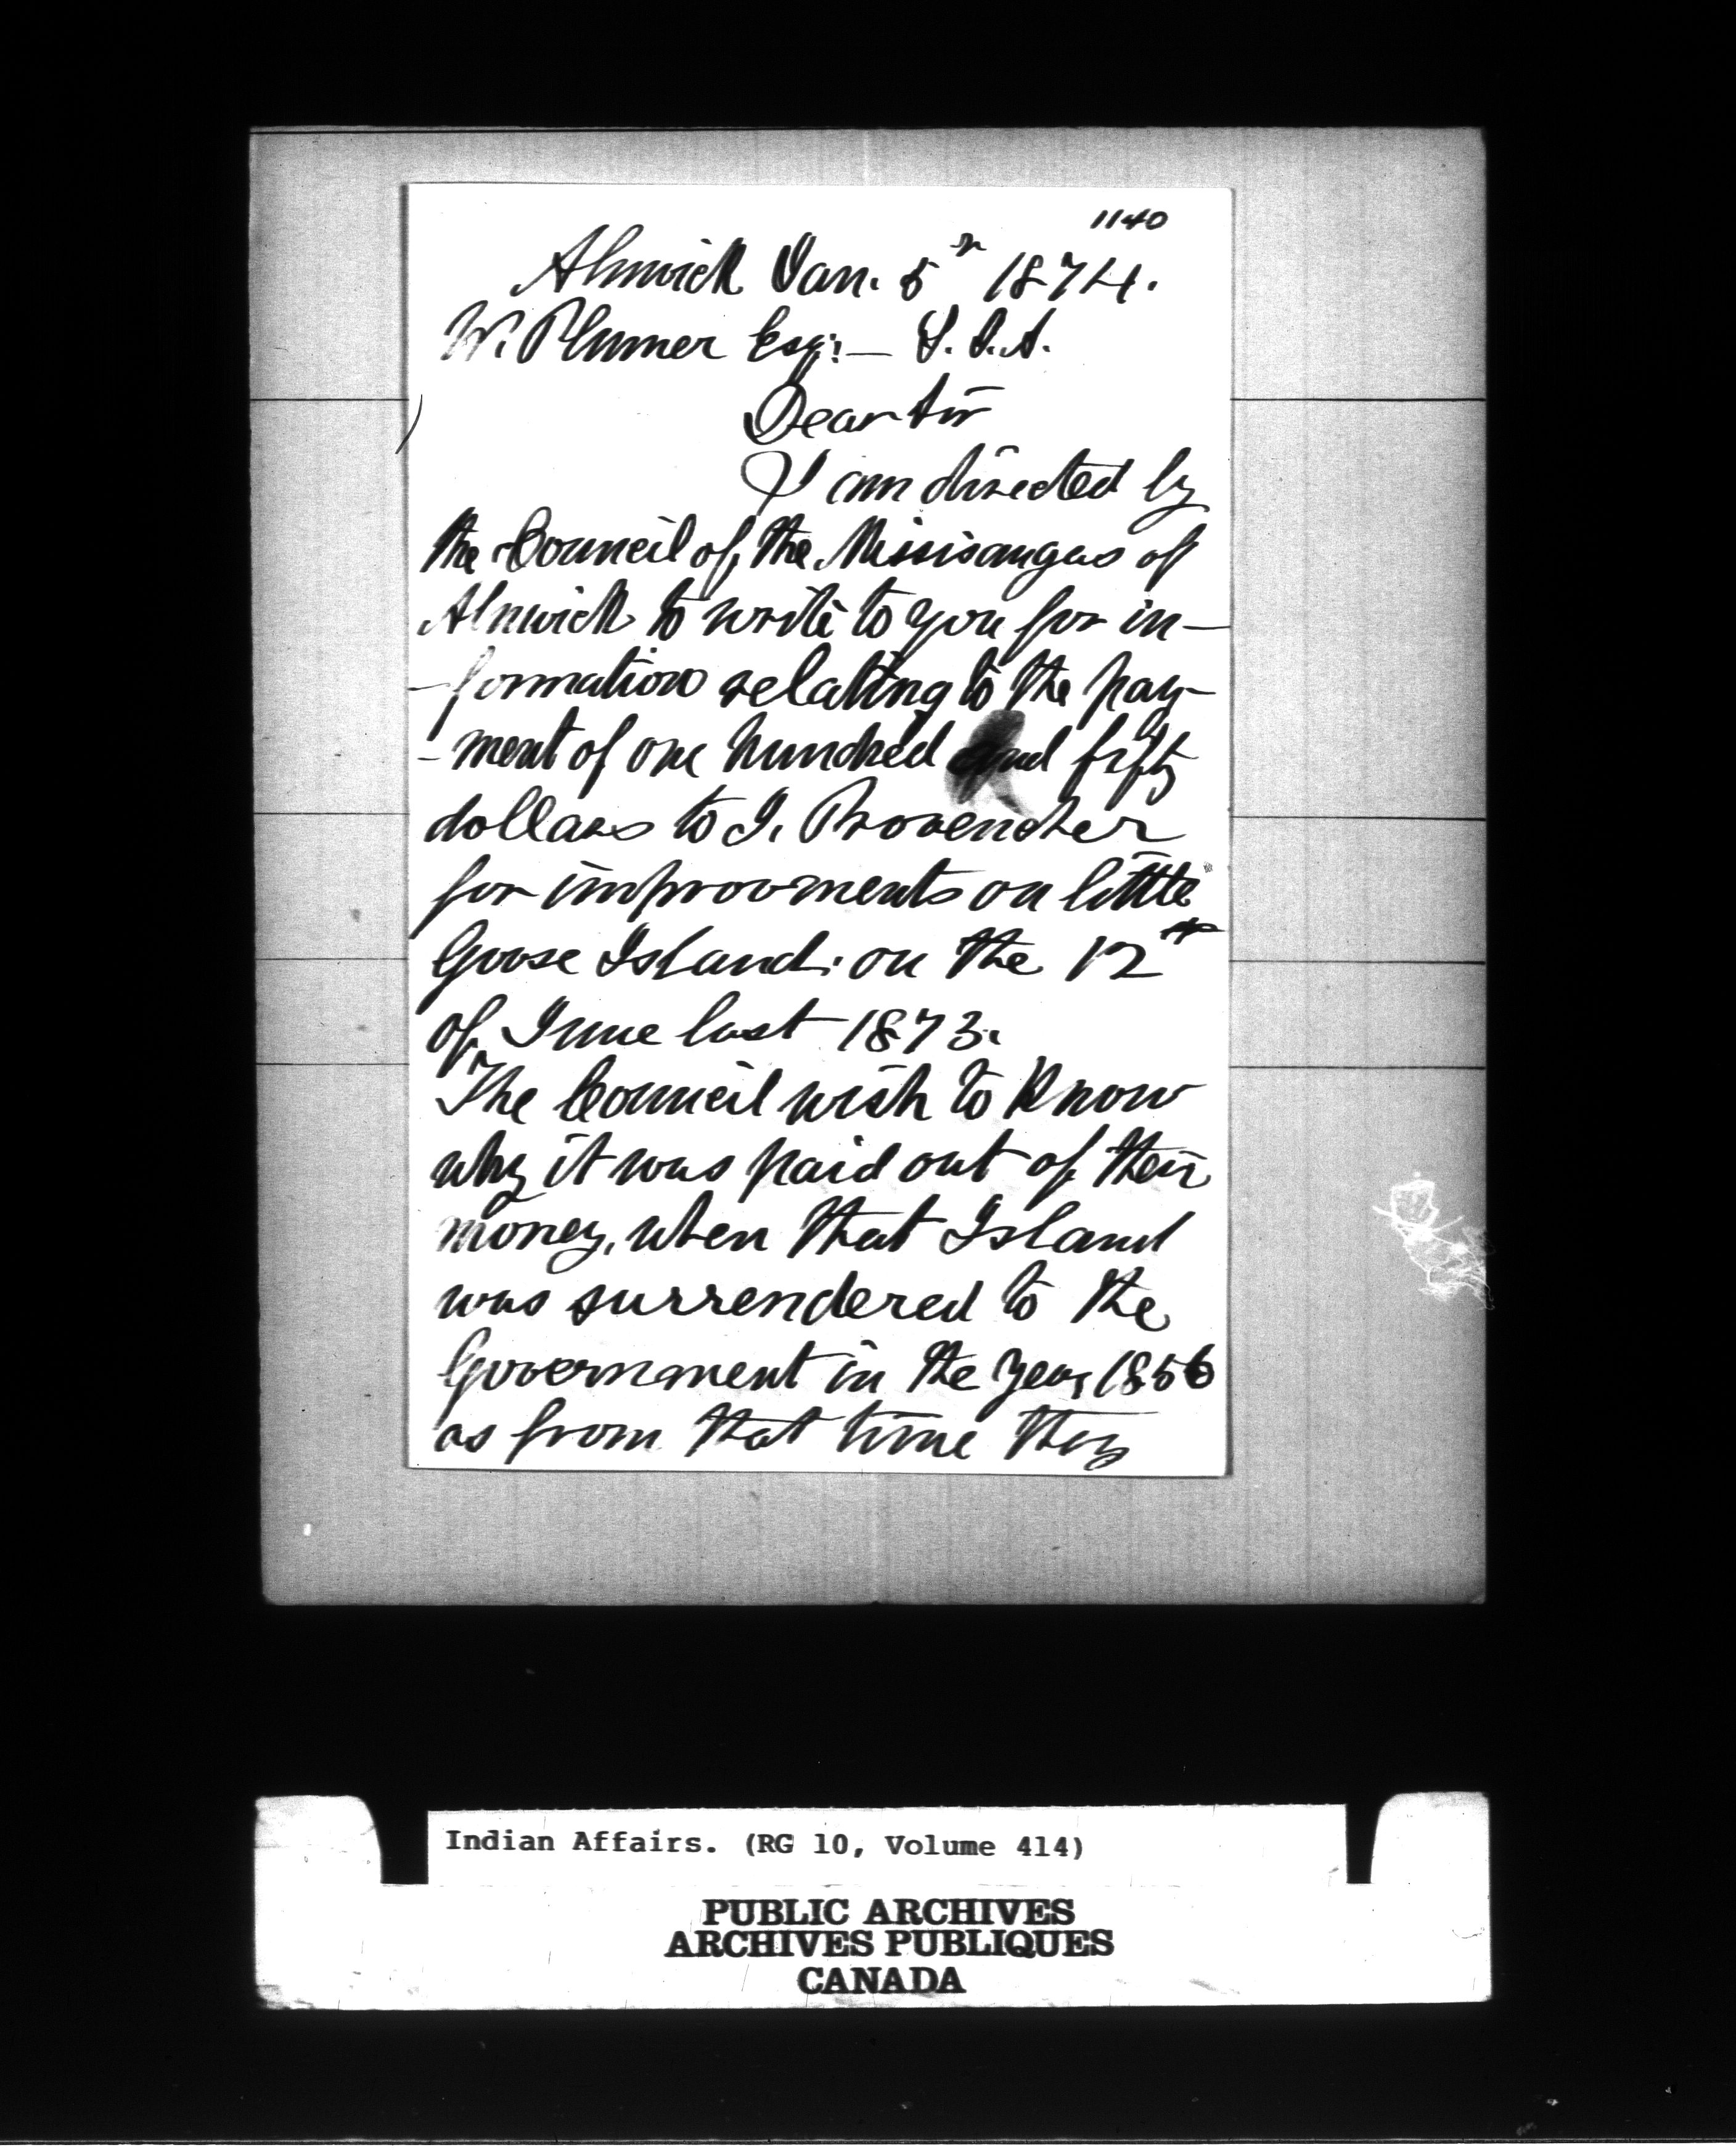 1140
Alnwick Jan. 5th 1874.
W. Plumer Esq:— S.I.A.
Dear Sir
I am directed by
the Council of the Missisaugas of
Alnwick to write to you for in-
-formation relating to the pay-
-ment of one hundred and fifty
dollars to I. Provencher
for improvments on little
Goose Island. on the 12th
of June last 1873.
The Council wish to know
why it was paid out of their
money, when that Island
was surrendered to the
Government in the year 1856
as from that time they
Indian Affairs. (RG 10, Volume 414)
PUBLIC ARCHIVES
ARCHIVES PUBLIQUES
CANADA